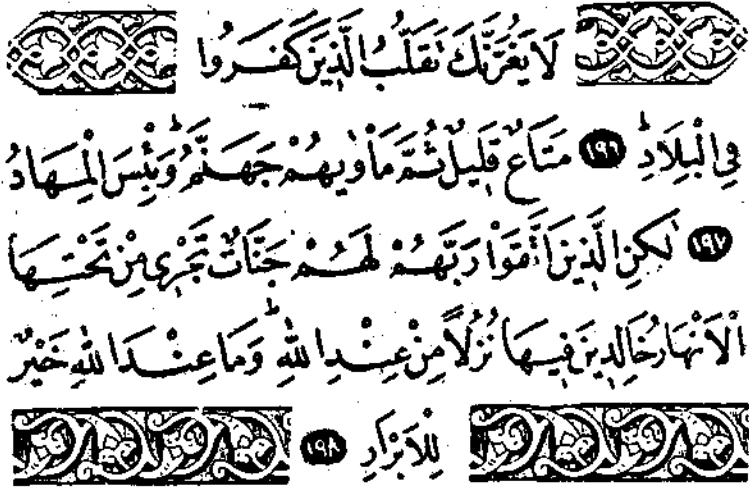 لَا يَغُرَّنَّكَ تَقَلُّبُ الَّذِينَ كَفَرُوا
فِي الْبِلَادِ ۱۹٦ مَتَاعٌ قَلِيلٌ ثُمَّ مَأْوٰيهُمْ جَهَنَّمُ وَبِئْسَ الْمِهَادُ
۱۹۷ لٰكِنِ الَّذِينَ اتَّقَوْا رَبَّهُمْ لَهُمْ جَنَّاتٌ تَجْرِي مِنْ تَحْتِهَا
الْاَنْهَارُ خَالِدِينَ فِيهَا نُزُلًا مِنْ عِنْدِ اللّٰهِ وَمَا عِنْدَ اللّٰهِ خَيْرٌ
لِلْاَبْرَارِ ۱۹۸